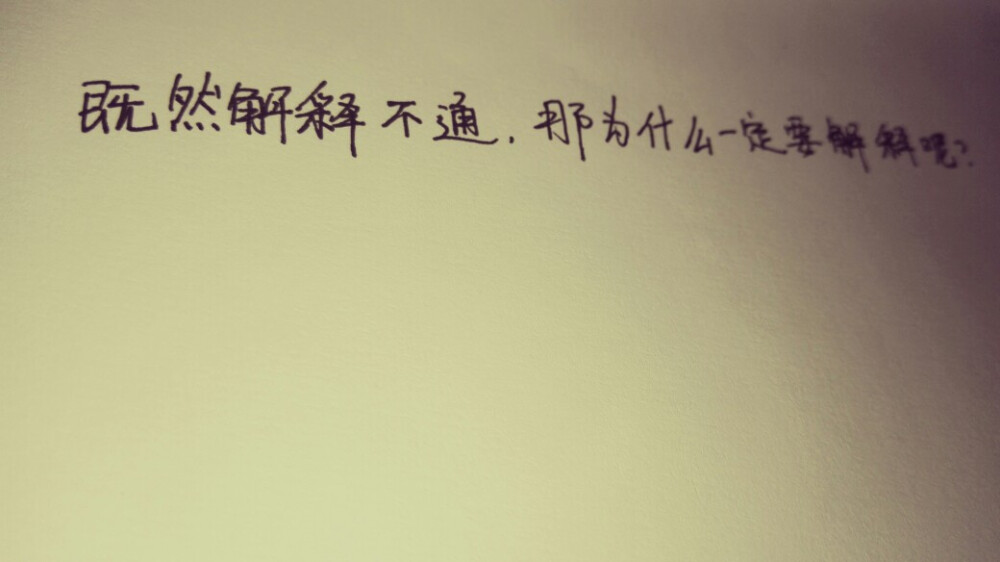 既然解释不通，那为什么一定要解释呢？